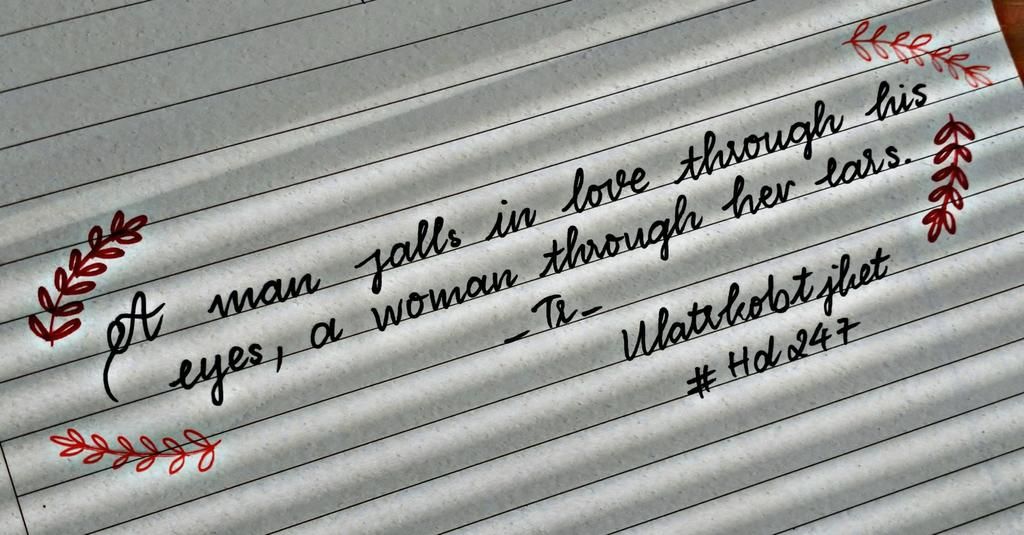 A man falls in love through his
eyes, a woman through her ears.
- Tr -
Ulatrkobt jhet
# Hd 247